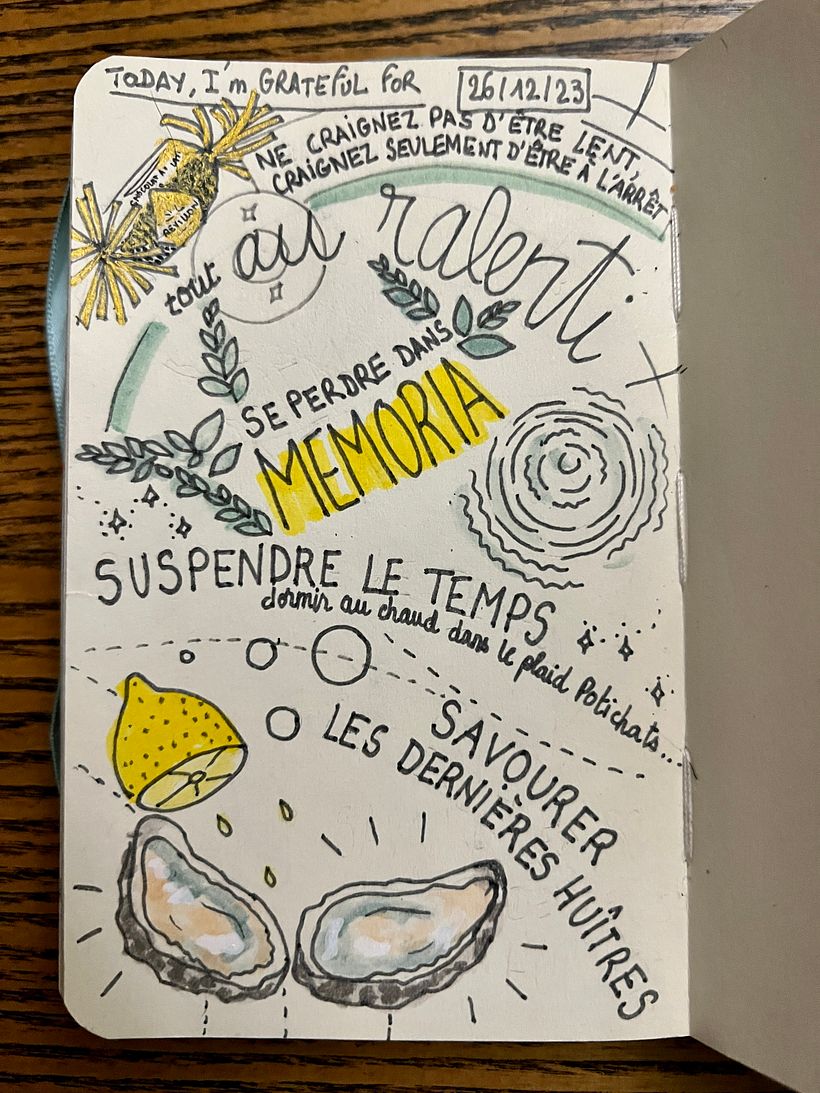 TODAY, I'm GRATEFUL FOR
26/12/23
NE CRAIGNEZ PAS D'ÊTRE LENT,
CRAIGNEZ SEULEMENT D'ÊTRE À L'ARRÊT
CHOCOLAT AU LAIT
RÉVILLON
tout au ralenti
SE PERDRE DANS
MEMORIA
SUSPENDRE LE TEMPS
dormir au chaud dans le plaid Potichats...
SAVOURER
LES DERNIÈRES HUÎTRES